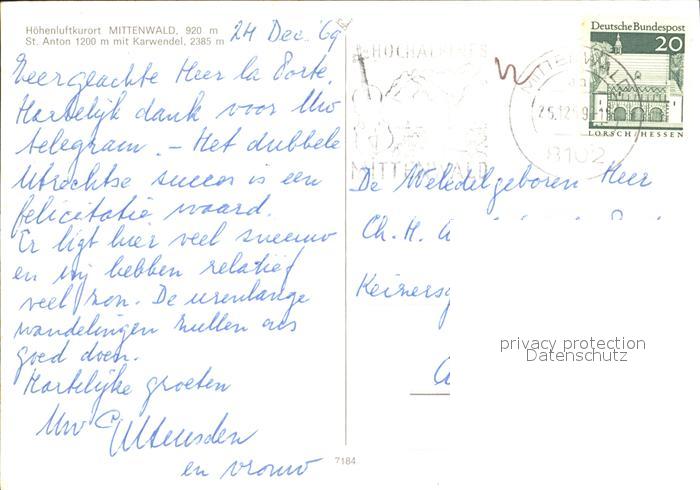 Höhenluftkurort MITTENWALD, 920 m
St. Anton 1200 m mit Karwendel, 2385 m
24 Dec. '69
Zeergeachte Heer la Porte,
Hartelijk dank voor Uw
telegram. – Het dubbele
Utrechtse succes is een
felicitatie waard.
Er ligt hier veel sneeuw
en wij hebben relatief
veel zon. De urenlange
wandelingen zullen ons
goed doen.
Hartelijke groeten
Uw
en vrouw
7184
HOCHALPINES
MITTENWALD
MITTENWALD
25.12.69
8102
Deutsche Bundespost
20
LORSCH/HESSEN
De Weledelgeboren Heer
Ch. H.
Keizersg
privacy protection
Datenschutz